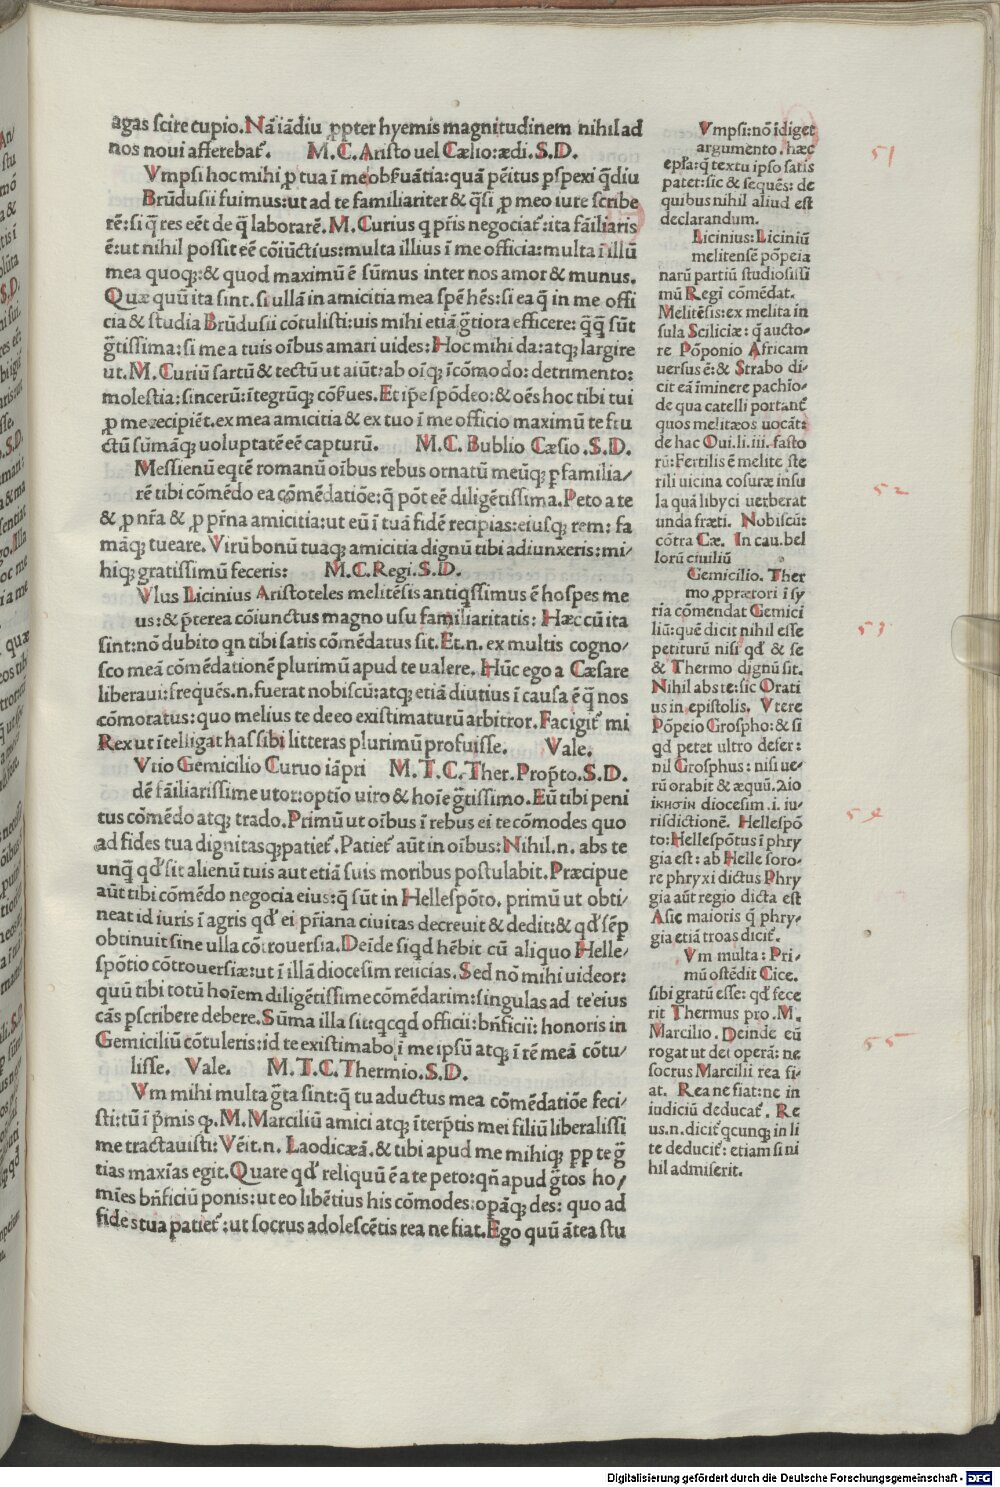 agas scire cupio. Nã iãdiu ꝓpter hyemis magnitudinem nihil ad
nos noui afferebat̃. M. C. Aristo uel Cælio: ædi. S. D.
Vmpsi hoc mihi ꝓ tua ĩ me obẜuãtia: quã pẽitus pspexi q̃diu
Brũdusii fuimus: ut ad te familiariter & q̃si ꝓ meo iure scribe
rẽ: si q̃ res eẽt de q̃ laborarẽ. M. Curius q pr̃is negociat̃: ita fãiliaris
ẽ: ut nihil possit eẽ cõiũctius: multa illius ĩ me officia: multa ĩ illũ
mea quoq;: & quod maximũ ẽ sũmus inter nos amor & munus.
Quæ quũ ita sint. si ullã in amicitia mea spẽ hẽs: si ea q̃ in me offi
cia & studia Brũdusii cõtulisti: uis mihi etiã g̃tiora efficere: q̃q̃ sũt
g̃tissima: si me a tuis oĩbus amari uides: Hoc mihi da: atq; largire
ut. M. Curiũ sartũ & tectũ ut aiũt: ab oĩq; ĩcõmodo: detrimento:
molestia: sincerũ: ĩtegrũq; cõẜues. Et ip̃e spõdeo: & oẽs hoc tibi tui
ꝓ me recipiẽt. ex mea amicitia & ex tuo ĩ me officio maximũ te fru
ctũ sũmãq; uoluptatẽ eẽ capturũ. M. C. Bublio Cæsio. S. D.
Messienũ eqtẽ romanũ oĩbus rebus ornatũ meũq; ꝑfamilia/
rẽ tibi cõmẽdo ea cõmẽdatiõe: q̃ põt eẽ diligẽtissima. Peto a te
& ꝓ nr̃a & ꝓ pr̃na amicitia: ut eũ ĩ tuã fidẽ recipias: eiusq; rem: fa
mãq; tueare. Virũ bonũ tuaq; amicitia dignũ tibi adiunxeris: mi/
hiq; gratissimũ feceris: M. C. Regi. S. D.
Vlus Licinius Aristoteles melitẽsis antiqssimus ẽ hospes me
us: & p̃terea cõiunctus magno usu familiaritatis: Hæc cũ ita
sint: nõ dubito qn tibi satis cõmẽdatus sit. Et. n. ex multis cogno/
sco meã cõmẽdationẽ plurimũ apud te ualere. Hũc ego a Cæsare
liberaui: frequẽs. n. fuerat nobiscũ: atq; etiã diutius ĩ causa ẽ q̃ nos
cõmoratus: quo melius te de eo existimaturũ arbitror. Fac igit̃ mi
Rex ut ĩtelligat has sibi litteras plurimũ profuisse. Vale.
Vtio Gemicilio Curuo iãpri M. T. C. Ther. Prop̃to. S. D.
dẽ fãiliarissime utor: optĩo uiro & hoĩe g̃tissimo. Eũ tibi peni
tus cõmẽdo atq; trado. Primũ ut oĩbus ĩ rebus ei te cõmodes quo
ad fides tua dignitasq; patiet̃. Patiet̃ aũt in oĩbus: Nihil. n. abs te
unq̃ qđ sit alienũ tuis aut etiã suis moribus postulabit. Præcipue
aũt tibi cõmẽdo negocia eius: q̃ sũt in Hellespõto. primũ ut obti/
neat id iuris ĩ agris qđ ei pr̃iana ciuitas decreuit & dedit: & qđ sẽp
obtinuit sine ulla cõtrouersia. Deĩde siqđ hẽbit cũ aliquo Helle/
spõtio cõtrouersiæ: ut ĩ illã diocesim reiicias. Sed nõ mihi uideor:
quũ tibi totũ hoĩem diligẽtissime cõmẽdarim: singulas ad te eius
cãs pscribere debere. Sũma illa sit: qcqd officii: bñficii: honoris in
Gemiciliũ cõtuleris: id te existimabo ĩ me ipsũ atq; ĩ rẽ meã cõtu/
lisse. Vale. M. T. C. Thermio. S. D.
Vm mihi multa g̃ta sint: q̃ tu aductus mea cõmẽdatiõe feci/
sti: tũ ĩ p̃mis qꝫ. M. Marciliũ amici atq; ĩterp̃tis mei filiũ liberalissi
me tractauisti: Vẽit. n. Laodicæã. & tibi apud me mihiq; ꝓpter g̃
tias maxĩas egit. Quare qđ reliquũ ẽ a te peto: qñ apud g̃tos ho/
mĩes bñficiũ ponis: ut eo libẽtius his cõmodes: opãq; des: quo ad
fides tua patiet̃: ut socrus adolescẽtis rea ne fiat. Ego quũ ãtea stu
Vmpsi: nõ ĩdiget
argumento. hæc
epl̃a: q̃ textu ipso satis
patet: sic & sequẽs: de
quibus nihil aliud est
declarandum.
Licinius: Liciniũ
melitensẽ põpeia
narũ partiũ studiosissi
mũ Regi cõmẽdat.
Melitẽsis: ex melita in
sula Sciliciæ: q̃ aucto/
re Põponio Africam
uersus ẽ: & Strabo di/
cit eã ĩminere pachio/
de qua catelli portant̃
quos melitæos uocãt:
de hac Oui. li. iii. fasto
rũ: Fertilis ẽ melite ste
rili uicina cosuræ insu
la quã libyci uerberat
unda fræti. Nobiscũ:
cõtra Cæ. In cau. bel
lorũ ciuiliũ
Gemicilio. Ther
mo ꝓprætori ĩ sy
ria cõmendat Gemici
liũ: quẽ dicit nihil esse
petiturũ nisi qđ & se
& Thermo dignũ sit.
Nihil abs te: sic Orati
us in epistolis. Vtere
Põpeio Grospho: & si
qd petet ultro defer:
nil Grosphus: nisi ue/
rũ orabit & æquũ. Διο
ικησιν diocesim .i. iu/
risdictionẽ. Hellespõ
to: Hellespõtus ĩ phry
gia est: ab Helle soro/
re phryxi dictus Phry
gia aũt regio dicta est
Asiæ maioris q̃ phry/
gia etiã troas dicit̃.
Vm multa: Pri/
mũ ostẽdit Cice.
sibi gratũ esse: qđ fece
rit Thermus pro .M.
Marcilio. Deinde eũ
rogat ut det operã: ne
socrus Marcilii rea fi/
at. Rea ne fiat: ne in
iudiciũ deducat̃. Re
us. n. dicit̃ qcunq; in li
te deducit̃: etiam si ni
hil admiserit.
51
52
53
54
55
Digitalisierung gefördert durch die Deutsche Forschungsgemeinschaft - DFG